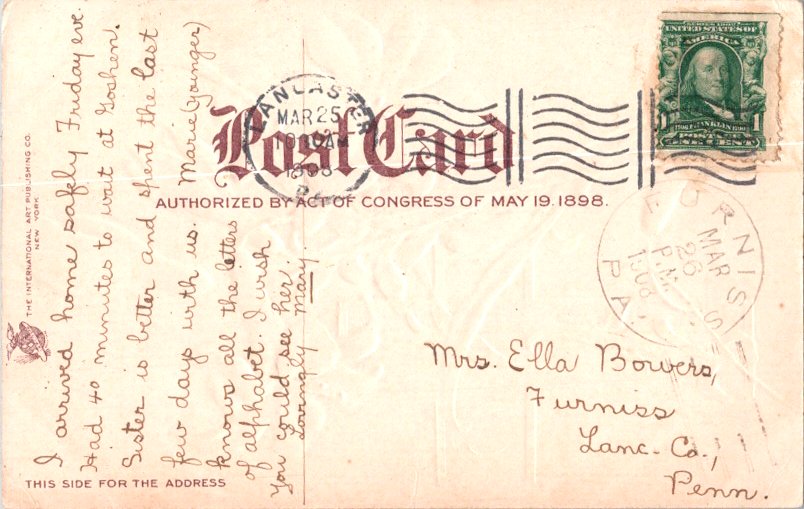 I arrived home safely Friday eve.
Had 40 minutes to wait at Goshen.
Sister is better and spent the last
few days with us. Marie (younger)
knows all the letters
of alphabet. I wish
you could see her.
Lovingly Mary
THE INTERNATIONAL ART PUBLISHING CO.
NEW YORK
Post Card
AUTHORIZED BY ACT OF CONGRESS OF MAY 19. 1898.
LANCASTER
MAR 25
10 AM
1908
PA
UNITED STATES OF
AMERICA
1 FRANKLIN 1
POSTAGE
ONE CENT
FURNISS
MAR
26
P.M.
1908
PA.
Mrs. Ella Bowers,
Furniss
Lanc. Co.,
Penn.
THIS SIDE FOR THE ADDRESS